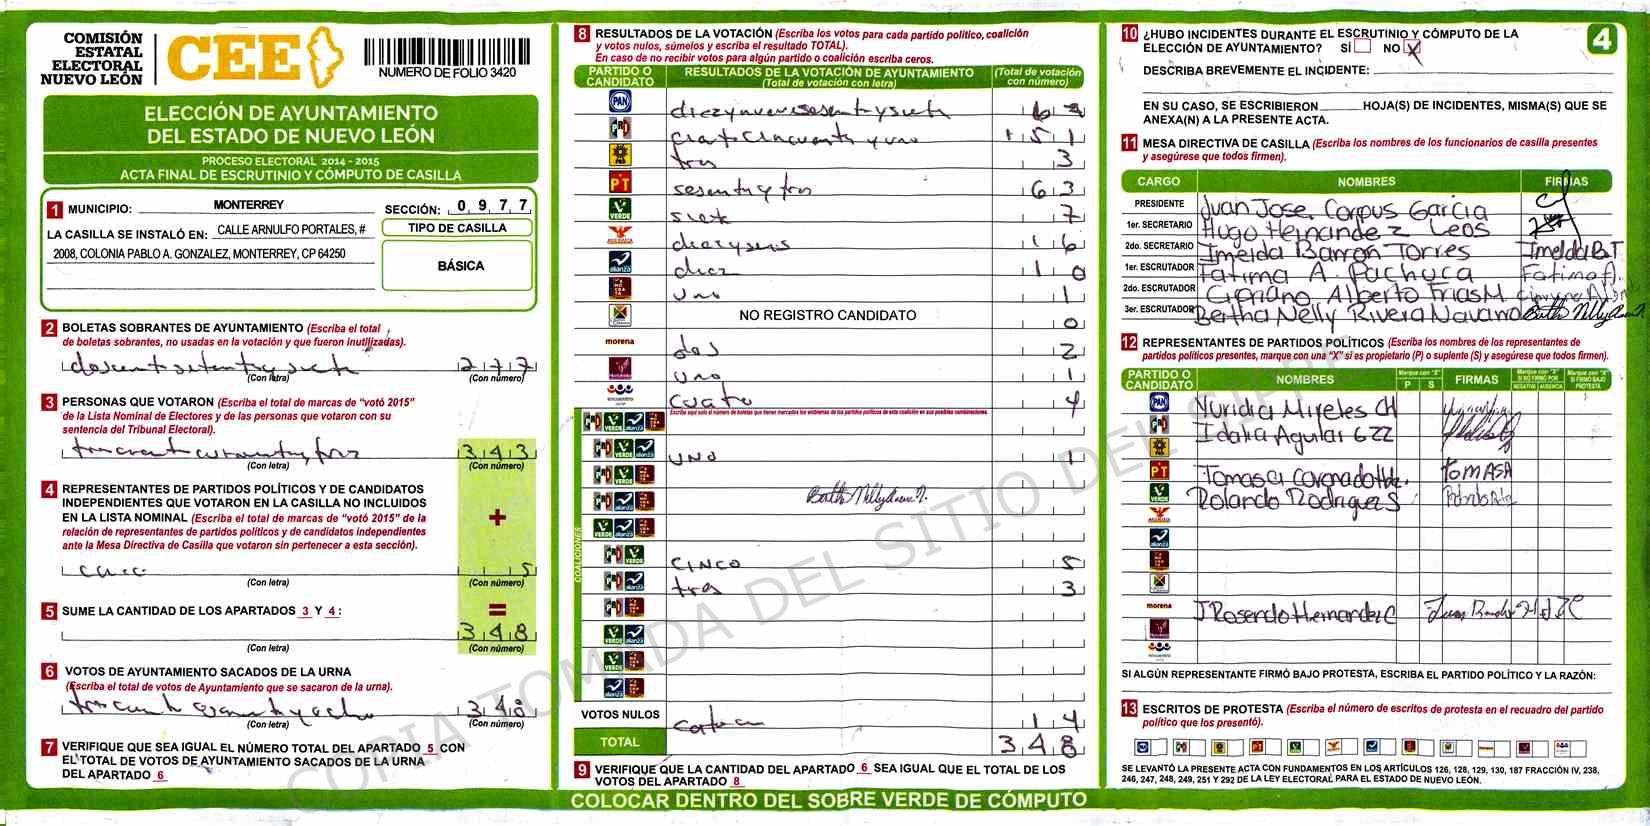 COMISIÓN
ESTATAL
ELECTORAL
NUEVO LEÓN
CEE
NUMERO DE FOLIO 3420
ELECCIÓN DE AYUNTAMIENTO
DEL ESTADO DE NUEVO LEÓN
PROCESO ELECTORAL 2014 - 2015
ACTA FINAL DE ESCRUTINIO Y CÓMPUTO DE CASILLA
1 MUNICIPIO: MONTERREY SECCIÓN: 0 9 7 7
LA CASILLA SE INSTALÓ EN: CALLE ARNULFO PORTALES, #
2008, COLONIA PABLO A. GONZALEZ, MONTERREY, CP 64250
TIPO DE CASILLA
BÁSICA
2 BOLETAS SOBRANTES DE AYUNTAMIENTO (Escriba el total
de boletas sobrantes, no usadas en la votación y que fueron inutilizadas).
277
(Con letra) (Con número)
3 PERSONAS QUE VOTARON (Escriba el total de marcas de "votó 2015"
de la Lista Nominal de Electores y de las personas que votaron con su
sentencia del Tribunal Electoral).
343
(Con letra) (Con número)
4 REPRESENTANTES DE PARTIDOS POLÍTICOS Y DE CANDIDATOS
INDEPENDIENTES QUE VOTARON EN LA CASILLA NO INCLUIDOS
EN LA LISTA NOMINAL (Escriba el total de marcas de "votó 2015" de la
relación de representantes de partidos políticos y de candidatos independientes
ante la Mesa Directiva de Casilla que votaron sin pertenecer a esta sección).
+
5
(Con letra) (Con número)
5 SUME LA CANTIDAD DE LOS APARTADOS 3 Y 4:
=
348
(Con letra) (Con número)
6 VOTOS DE AYUNTAMIENTO SACADOS DE LA URNA
(Escriba el total de votos de Ayuntamiento que se sacaron de la urna).
348
(Con letra) (Con número)
7 VERIFIQUE QUE SEA IGUAL EL NÚMERO TOTAL DEL APARTADO 5 CON
EL TOTAL DE VOTOS DE AYUNTAMIENTO SACADOS DE LA URNA
DEL APARTADO 6
8 RESULTADOS DE LA VOTACIÓN (Escriba los votos para cada partido político, coalición
y votos nulos, súmelos y escriba el resultado TOTAL).
En caso de no recibir votos para algún partido o coalición escriba ceros.
PARTIDO O CANDIDATO RESULTADOS DE LA VOTACIÓN DE AYUNTAMIENTO (Total de votación con letra) (Total de votación con número)
PAN 67
PRI ciento cincuenta y uno 151
PRD tres 3
PT sesenta y tres 63
VERDE siete 7
diez y seis 16
alianza diez 10
uno 1
NO REGISTRO CANDIDATO 0
morena dos 2
uno 1
encuentro cuatro 4
Escriba aquí solo el número de boletas que tienen marcados los emblemas de los partidos políticos de esta coalición en sus posibles combinaciones.
COALICIONES
UNO 1
CINCO 5
tres 3
VOTOS NULOS catorce 14
TOTAL 348
9 VERIFIQUE QUE LA CANTIDAD DEL APARTADO 6 SEA IGUAL QUE EL TOTAL DE LOS
VOTOS DEL APARTADO 8
COLOCAR DENTRO DEL SOBRE VERDE DE CÓMPUTO
10 ¿HUBO INCIDENTES DURANTE EL ESCRUTINIO Y CÓMPUTO DE LA
ELECCIÓN DE AYUNTAMIENTO? SÍ NO X
4
DESCRIBA BREVEMENTE EL INCIDENTE:
EN SU CASO, SE ESCRIBIERON HOJA(S) DE INCIDENTES, MISMA(S) QUE SE
ANEXA(N) A LA PRESENTE ACTA.
11 MESA DIRECTIVA DE CASILLA (Escriba los nombres de los funcionarios de casilla presentes
y asegúrese que todos firmen).
CARGO NOMBRES FIRMAS
PRESIDENTE Juan Jose Corpus Garcia
1er. SECRETARIO Hugo Hernandez Leos
2do. SECRETARIO Imelda Barron Torres Imelda B.T
1er. ESCRUTADOR Fatima A. Pachuca Fatima A.
2do. ESCRUTADOR Cipriano Alberto Frias M
3er. ESCRUTADOR Bertha Nelly Rivera Navarro
12 REPRESENTANTES DE PARTIDOS POLÍTICOS (Escriba los nombres de los representantes de
partidos políticos presentes, marque con una "X" si es propietario (P) o suplente (S) y asegúrese que todos firmen).
PARTIDO O CANDIDATO NOMBRES Marque con "X" P S FIRMAS Marque con "X" SI NO FIRMÓ POR NEGATIVA AUSENCIA Marque con "X" SI FIRMÓ BAJO PROTESTA
PAN Yuridia Mireles CH
PRI Idalia Aguilar
PRD
PT Tomasa Coronado Hdz. TOMASA
VERDE Rolando Rodriguez S
morena J Rosendo Hernandez C
SI ALGÚN REPRESENTANTE FIRMÓ BAJO PROTESTA, ESCRIBA EL PARTIDO POLÍTICO Y LA RAZÓN:
13 ESCRITOS DE PROTESTA (Escriba el número de escritos de protesta en el recuadro del partido
político que los presentó).
SE LEVANTÓ LA PRESENTE ACTA CON FUNDAMENTOS EN LOS ARTÍCULOS 126, 128, 129, 130, 187 FRACCIÓN IV, 238,
246, 247, 248, 249, 251 Y 292 DE LA LEY ELECTORAL PARA EL ESTADO DE NUEVO LEÓN.
COPIA TOMADA DEL SITIO DEL SIPRE